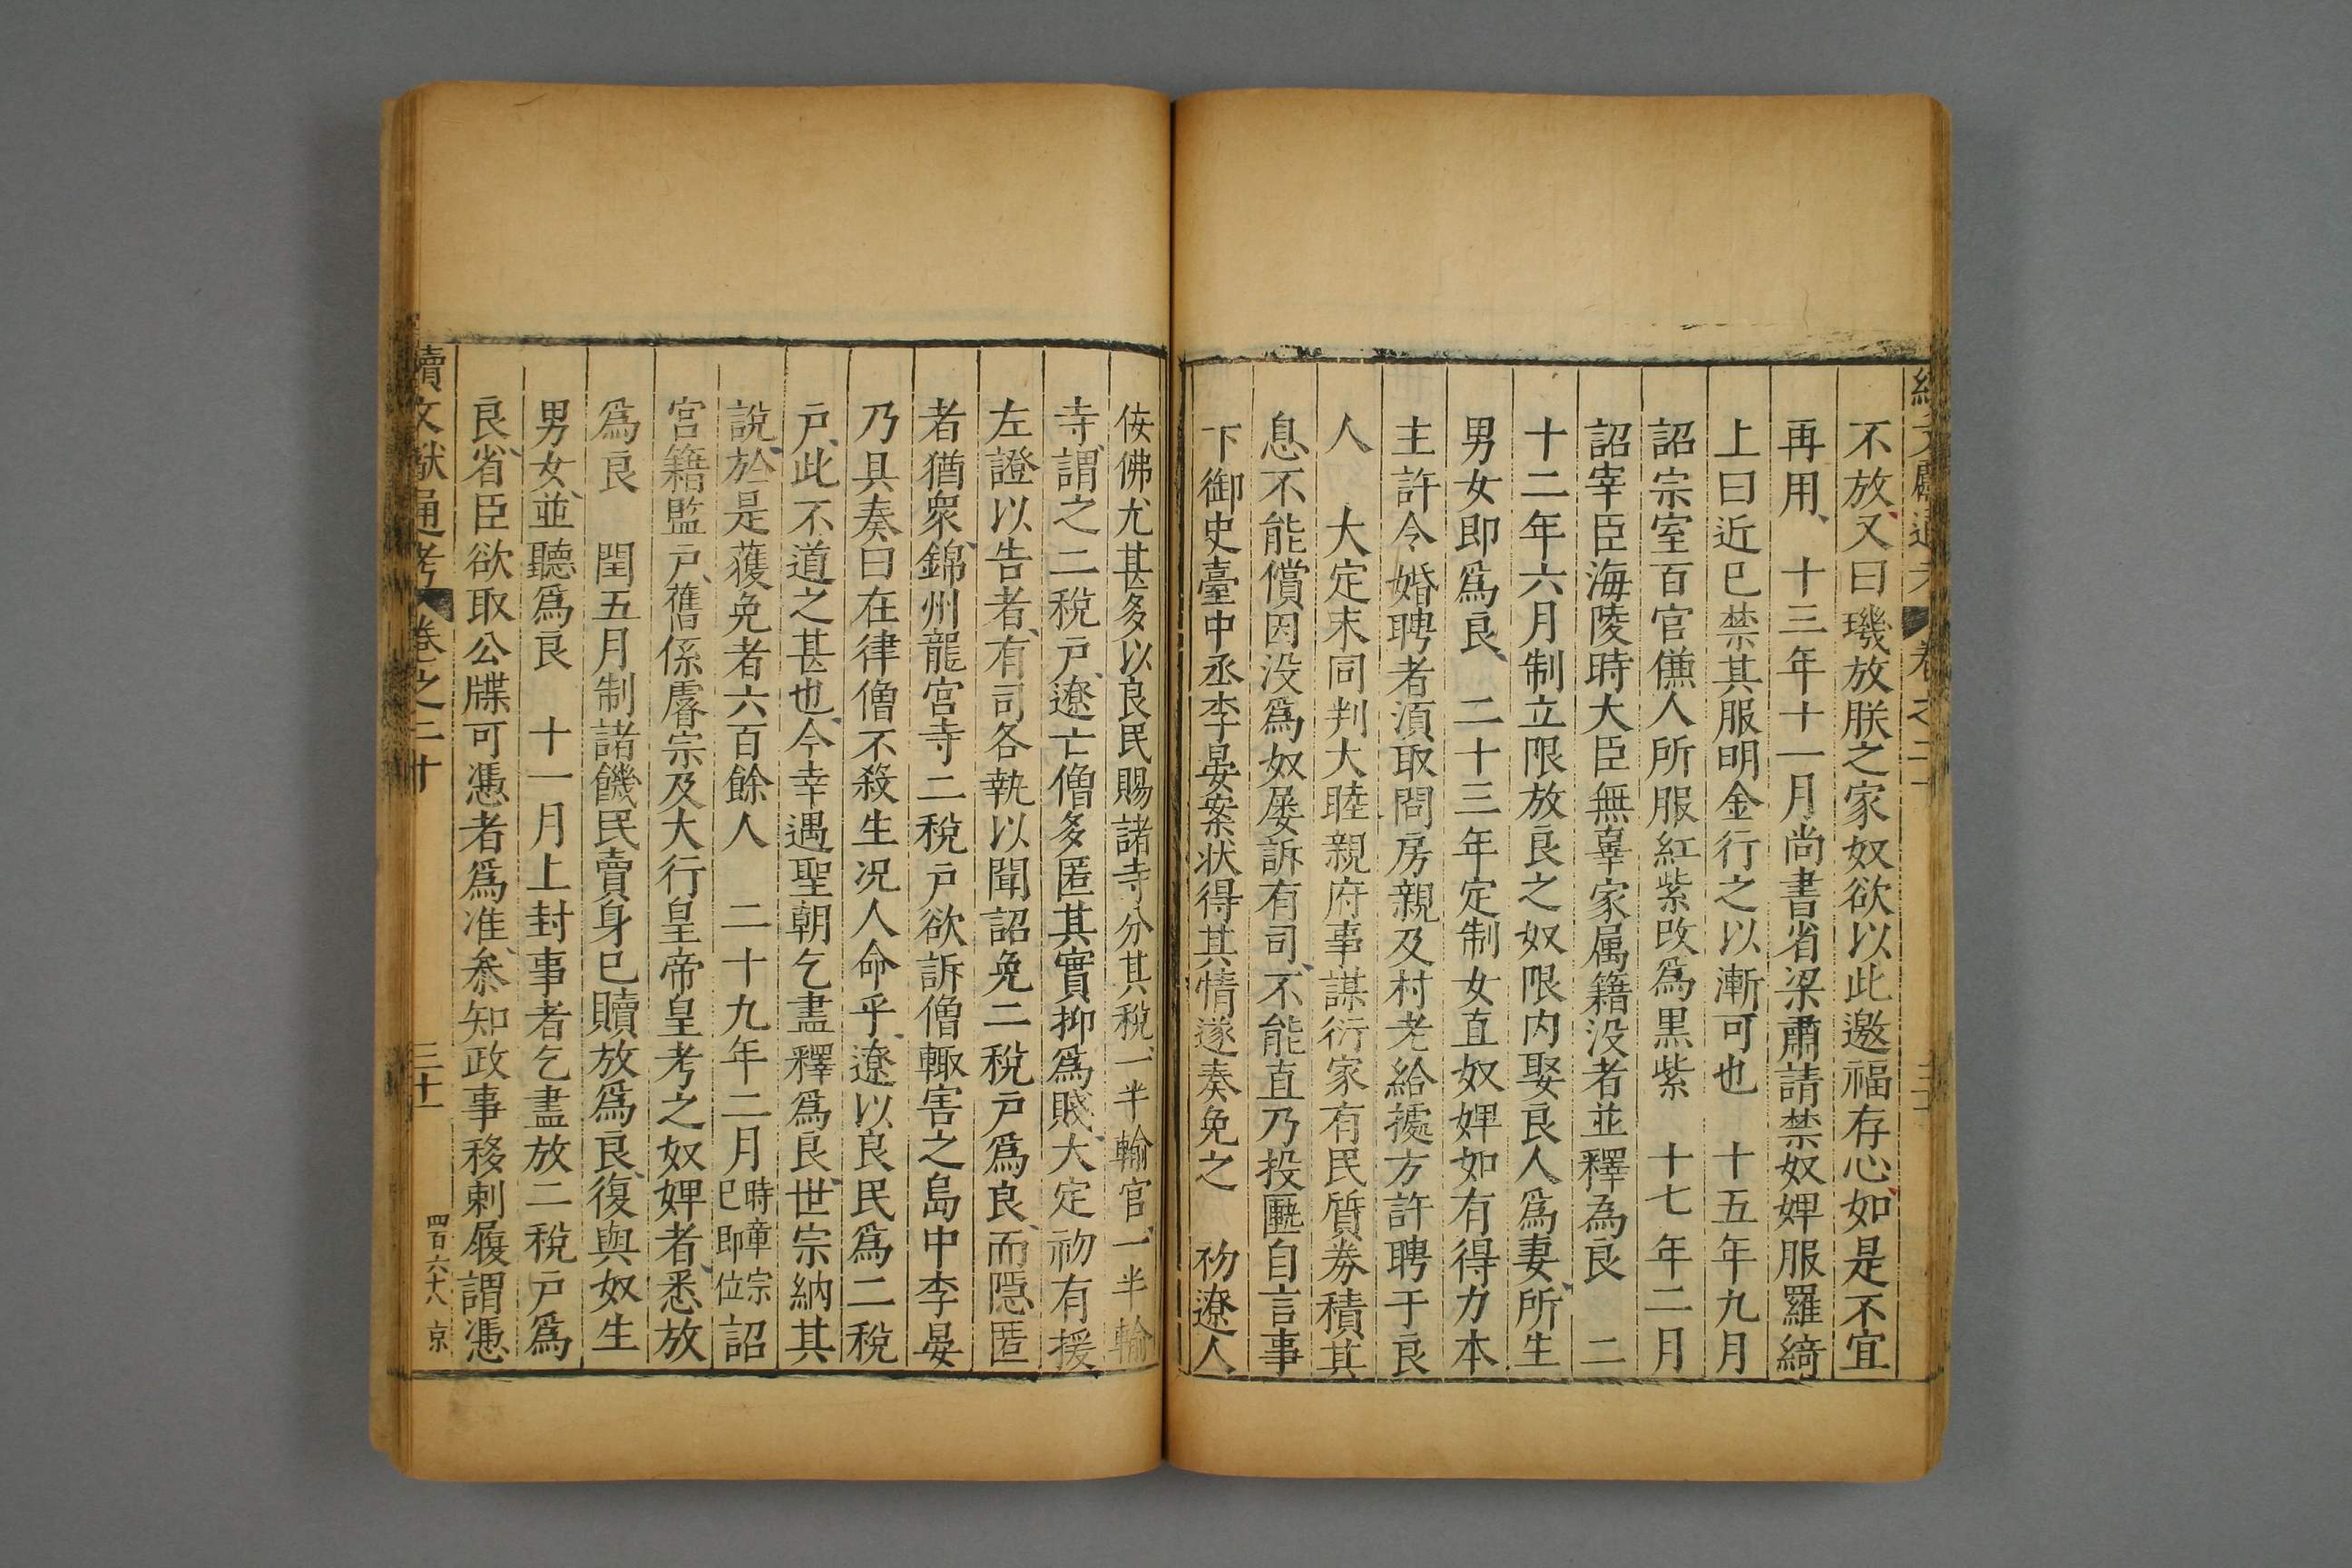 不放又曰璣放朕之家奴欲以此邀福存心如是不宜
再用　十三年十一月尚書省梁肅請禁奴婢服羅綺
上曰近已禁其服明金行之以漸可也　十五年九月
詔宗室百官傔人所服紅紫改爲黑紫　十七年二月
詔宰臣海陵時大臣無辜家属籍没者並釋為良　二
十二年六月制立限放良之奴限内娶良人爲妻所生
男女即爲良　二十三年定制女直奴婢如有得力本
主許令婚聘者湏取問房親及村老給㨿方許聘于良
人　大定末同判大睦親府事謀衍家有民質劵積其
息不能償因没爲奴屡訴有司不能直乃投匭自言事
下御史臺中丞李晏案状得其情遂奏免之　初遼人
佞佛尤甚多以良民賜諸寺分其稅一半輸官一半輸
寺謂之二稅戸遼亡僧多匿其實抑爲賤大定初有援
左證以告者有司各執以聞詔免二稅戸爲良而隱匿
者猶衆錦州龍宮寺二稅戸欲訴僧輙害之島中李晏
乃具奏曰在律僧不殺生况人命乎遼以良民爲二稅
戸此不道之甚也今幸遇聖朝乞盡釋爲良世宗納其
說於是獲免者六百餘人　二十九年二月時章宗已即位詔
宮籍監戸舊係睿宗及大行皇帝皇考之奴婢者悉放
爲良　閏五月制諸饑民賣身已贖放爲良復與奴生
男女並聽爲良　十一月上封事者乞盡放二稅戸爲
良省臣欲取公牒可憑者爲准叅知政事移剌履謂憑
續文獻通考　卷之二十　三十一　四百六十八　京